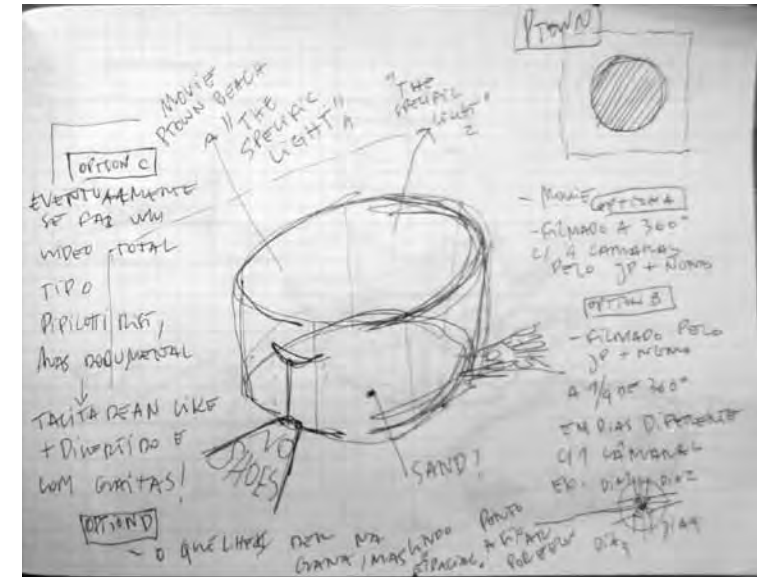 PTOWN
MOVIE
PTOWN BEACH
"THE
SPECIFIC
LIGHT"
"THE
SPECIFIC
LIGHT"
2
OPTION C
EVENTUALMENTE
SE FAZ UM
VIDEO TOTAL
TIPO
PIPILOTTI RIST,
MAS DOCUMENTAL
TACITA DEAN LIKE
+ DIVERTIDO E
COM GAITAS!
- MOVIE OPTION A
- FILMADO A 360°
C/ 4 CAMARAS
PELO JP + NUNO
OPTION B
- FILMADO PELO
JP + NUNO
A 1/4 DE 360°
EM DIAS DIFERENTE
C/1 CÂMARA
EX. DIA 1 DIA 2
DIA 4
NO
SHOES
SAND?
OPTION D
- O QUE LHES DER NA
GANA, MAS LINDO PONTO
ESPACIAL. A FICAR